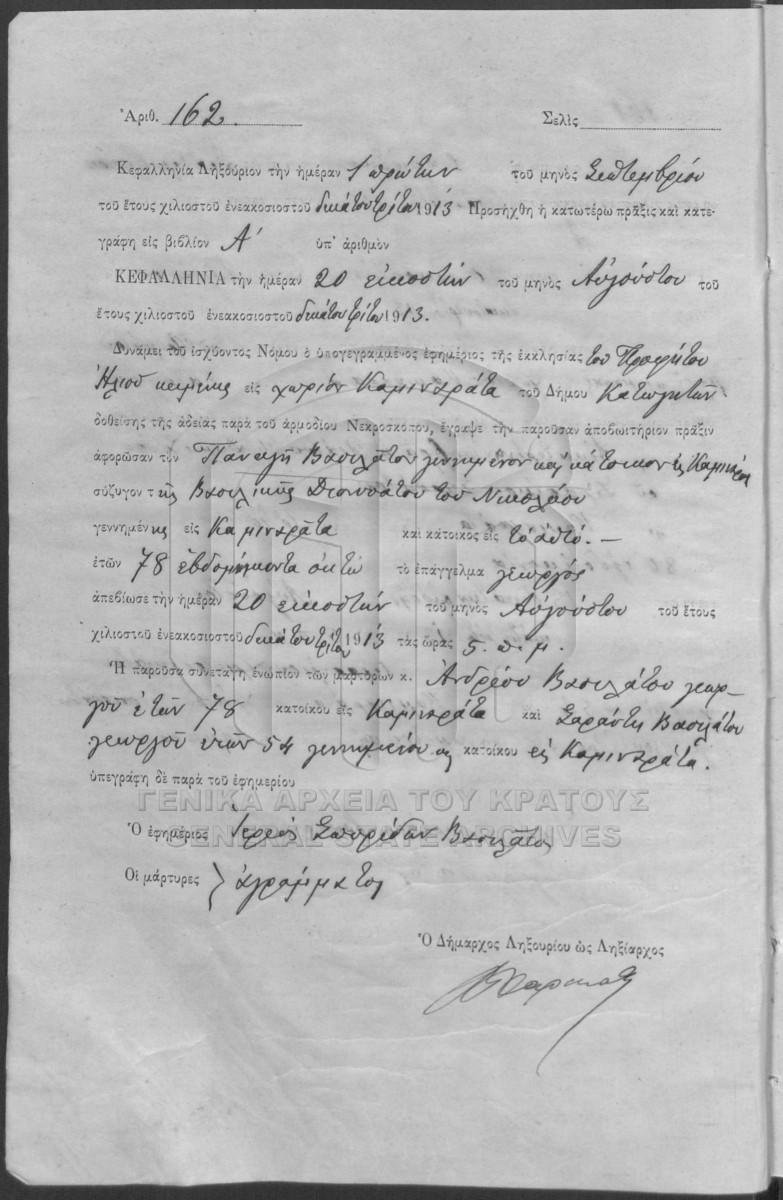 Ἀριθ. 162. Σελὶς
Κεφαλληνία Ληξούριον τὴν ἡμέραν 1 πρώτην τοῦ μηνὸς Σεπτεμβρίου
τοῦ ἔτους χιλιοστοῦ ἐνεακοσιοστοῦ δεκάτου τρίτου 1913 Προσήχθη ἡ κατωτέρω πρᾶξις καὶ κατε-
γράφη εἰς βιβλίον Α' ὑπ' ἀριθμὸν
ΚΕΦΑΛΛΗΝΙΑ τὴν ἡμέραν 20 εἰκοστὴν τοῦ μηνὸς Αὐγούστου τοῦ
ἔτους χιλιοστοῦ ἐνεακοσιοστοῦ δεκάτου τρίτου 1913.
Δυνάμει τοῦ ἰσχύοντος Νόμου ὁ ὑπογεγραμμένος ἐφημέριος τῆς ἐκκλησίας του Προφήτου
Ηλιού κειμένης εἰς χωρίον Καμιναράτα τοῦ Δήμου Κατωγητῶν
δοθείσης τῆς ἀδείας παρὰ τοῦ ἁρμοδίου Νεκροσκόπου, ἔγραψε τὴν παροῦσαν ἀποβιωτήριον πρᾶξιν
ἀφορῶσαν τὸν Παναγῆ Βασιλάτον γεννημένον καὶ κάτοικον εἰς Καμιναράτα
σύζυγον τῆς Βασιλικῆς Διονυσάτου του Νικολάου
γεννημένης εἰς Καμιναράτα καὶ κάτοικος εἰς τὸ αὐτό. —
ἐτῶν 78 ἑβδομήκοντα ὀκτώ τὸ ἐπάγγελμα γεωργός
ἀπεβίωσε τὴν ἡμέραν 20 εἰκοστὴν τοῦ μηνὸς Αὐγούστου τοῦ ἔτους
χιλιοστοῦ ἐνεακοσιοστοῦ δεκάτου τρίτου 1913 τὰς ὥρας 5. π. μ.
Ἡ παροῦσα συνετάγη ἐνώπιον τῶν μαρτύρων κ. Ἀνδρέου Βασιλάτου γεωρ-
γοῦ ἐτῶν 78 κατοίκου εἰς Καμιναράτα καὶ Σαράντη Βασιλάτου
γεωργοῦ ἐτῶν 54 γεννημένου κατοίκου εἰς Καμιναράτα.
ὑπεγράφη δὲ παρὰ τοῦ ἐφημερίου
ΓΕΝΙΚΑ ΑΡΧΕΙΑ ΤΟΥ ΚΡΑΤΟΥΣ
GENERAL STATE ARCHIVES
Ὁ ἐφημέριος Ἱερεὺς Σπυρίδων Βασιλάτος
Οἱ μάρτυρες } ἀγράμματοι
Ὁ Δήμαρχος Ληξουρίου ὡς Ληξίαρχος